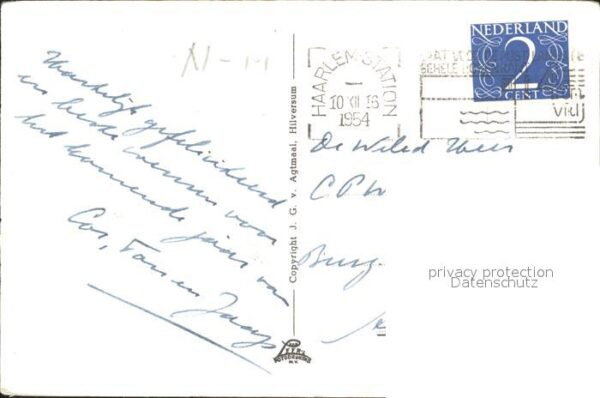 XI-14
Hartelijk gefeliciteerd
en beste wensen voor
het komende jaar van
Cor, Fan en Jaap
Copyright J. G. v. Agtmaal, Hilversum
HAARLEM-STATION
10 XII 16
1954
GEHELE
NEDERLAND
2
CENT
De Weled Heer
C.P.
Burg.
privacy protection
Datenschutz